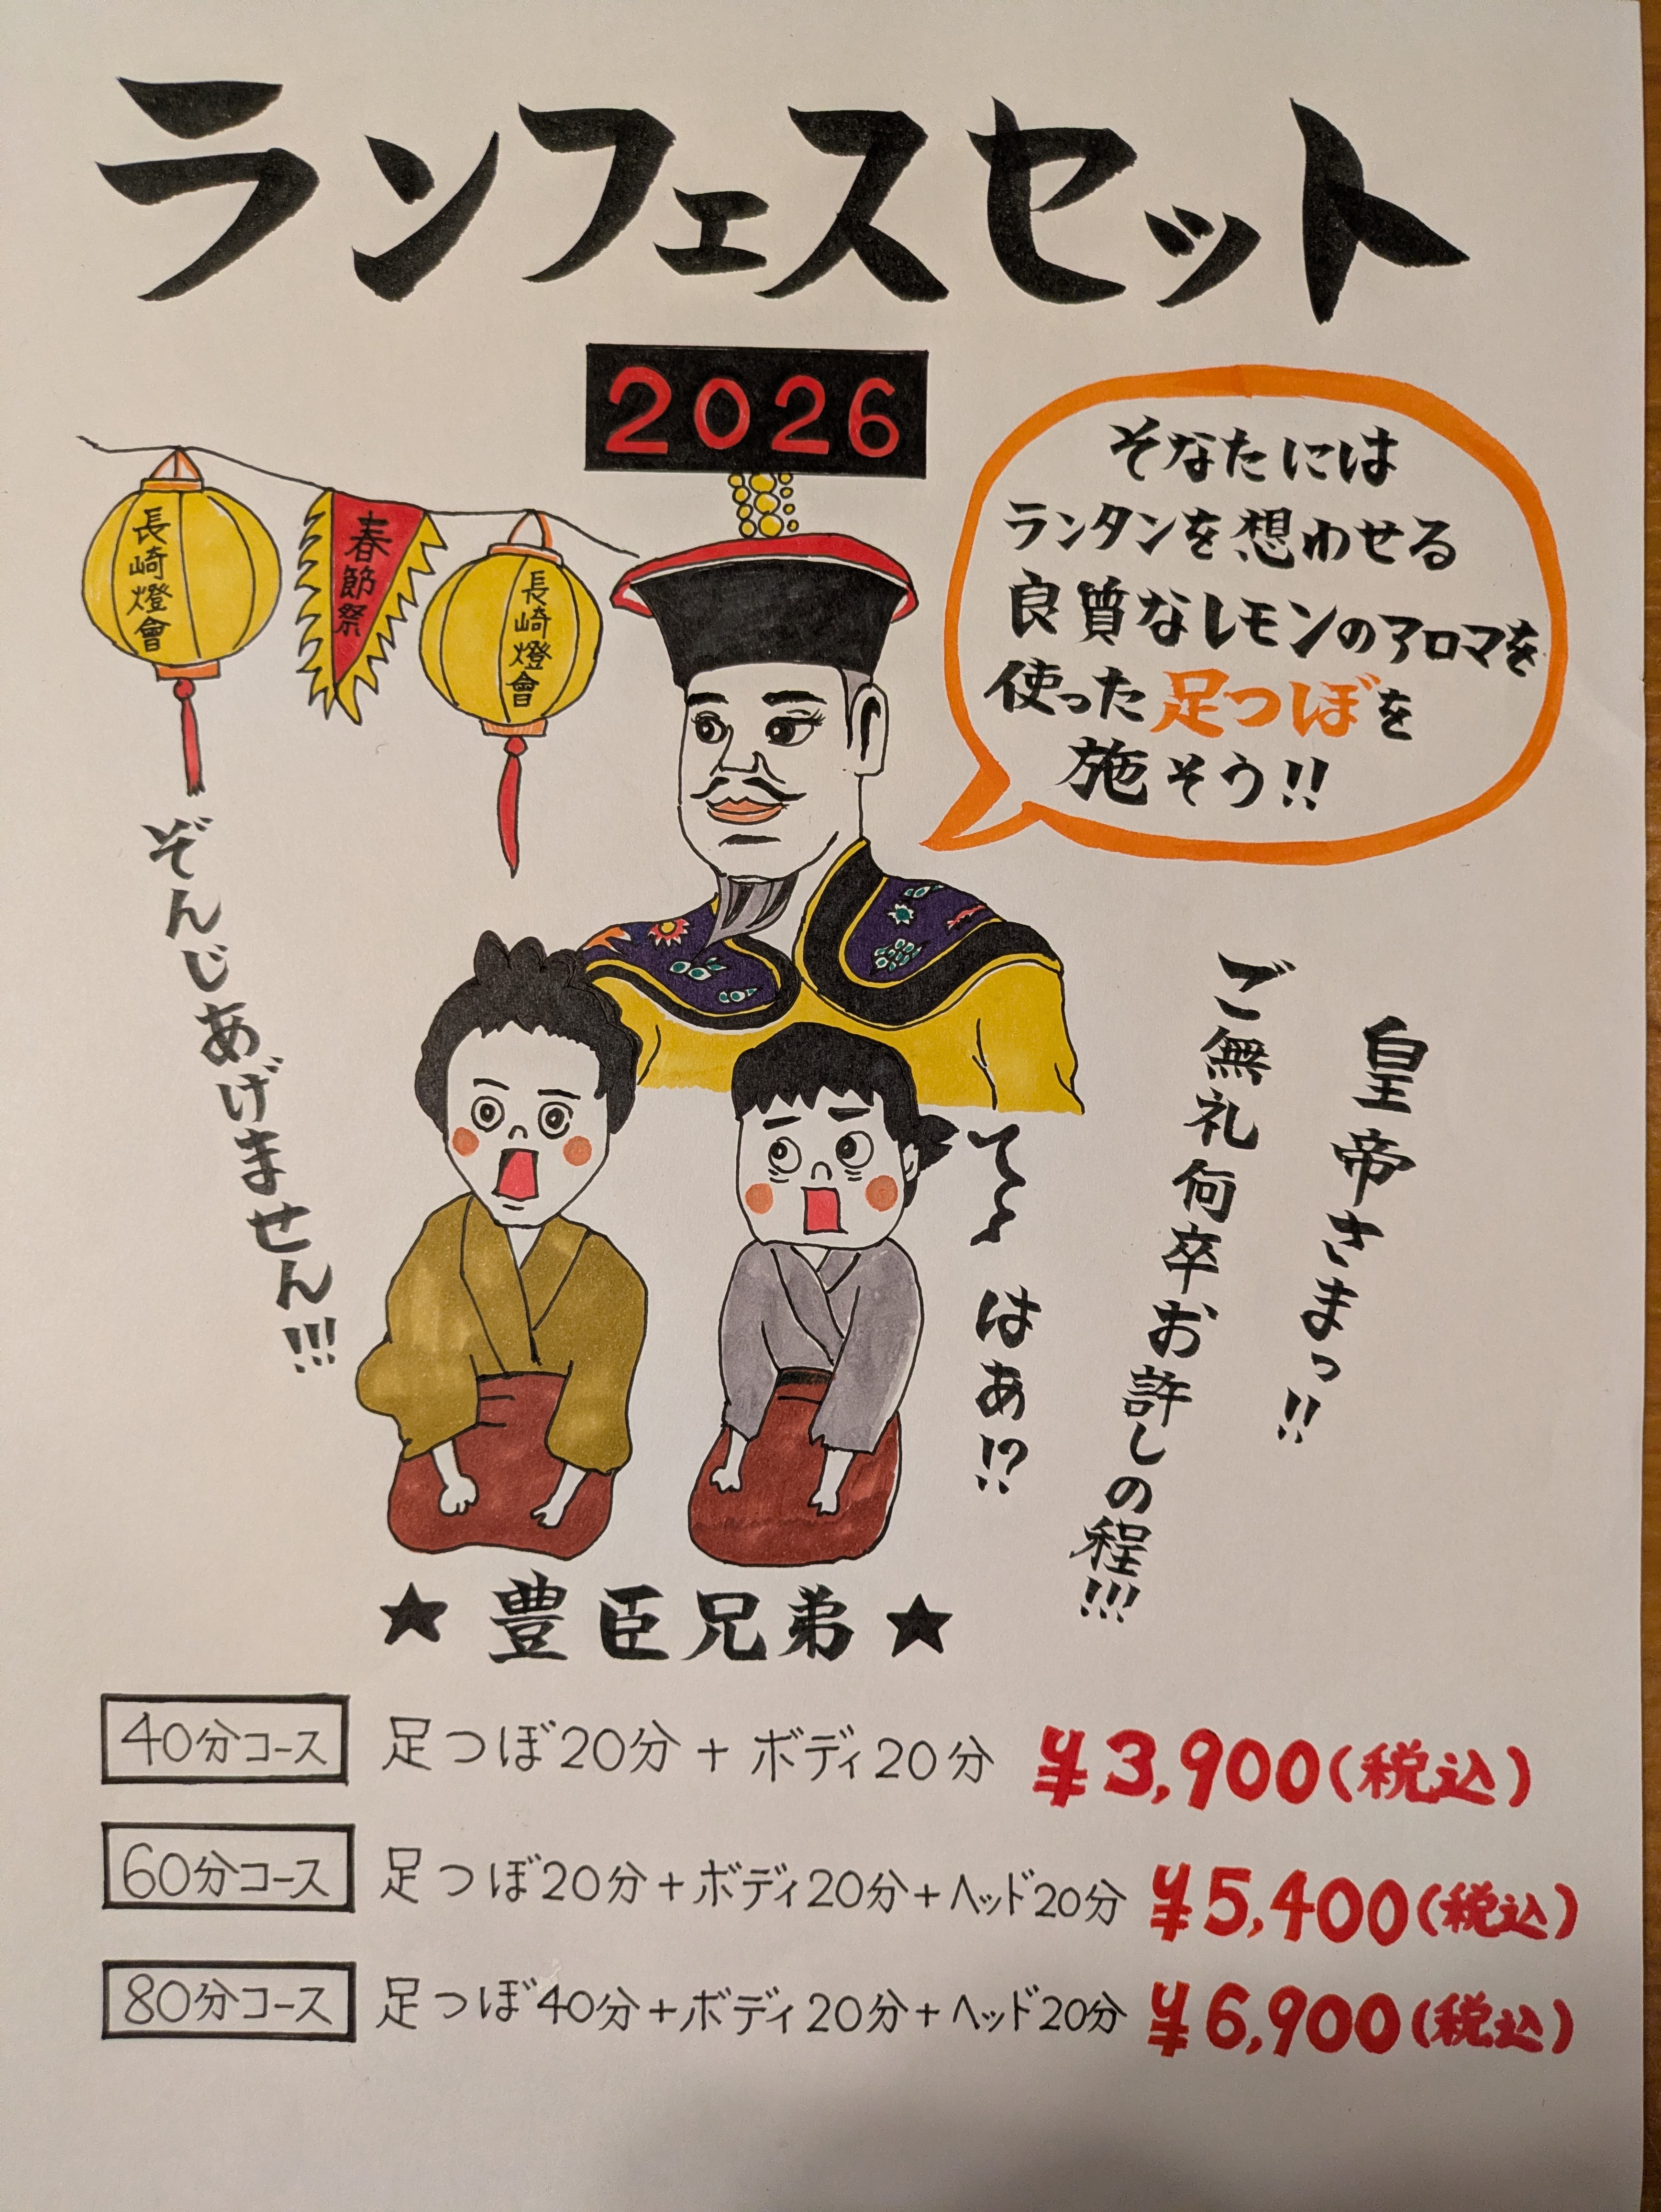 ランフェスセット
2026
長崎燈會
春節祭
長崎燈會
そなたには
ランタンを想わせる
良質なレモンのアロマを
使った足つぼを
施そう!!
皇帝さまっ!!
ご無礼何卒お許しの程!!!
て〜はあ!?
ぞんじあげません!!!
★豊臣兄弟★
40分コース 足つぼ20分+ボディ20分 ¥3,900(税込)
60分コース 足つぼ20分+ボディ20分+ヘッド20分 ¥5,400(税込)
80分コース 足つぼ40分+ボディ20分+ヘッド20分 ¥6,900(税込)